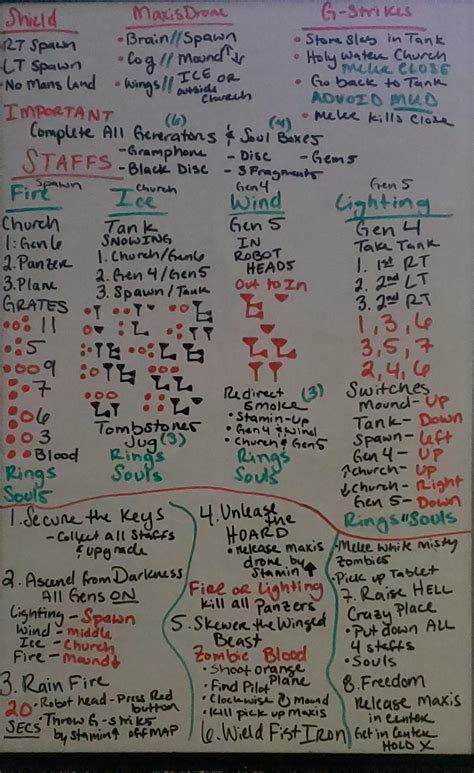 Shield
RT Spawn
LT Spawn
No Mans Land
Maxis Drone
• Brain // Spawn
• Cog // Mound ↑↓
• Wings // ICE OR
outside
Church
G-Strikes
• Stone Slab in Tank
• Holy Water Church
Melee CLOSE
• Go back to Tank
ADVOID MUD
• Melee Kills Close
IMPORTANT
(6) (4)
Complete All Generators & Soul Boxes
STAFFS
- Gramphone
- Black Disc
- Disc
- 3 Fragments
- Gems
Fire Spawn
Church
1. Gen 6
2. Panzer
3. Plane
GRATES
11
5
9
7
6
3
Blood
Rings
Souls
Ice Church
Tank
SNOWING
1. Church/Gen6
2. Gen 4/Gen5
3. Spawn/Tank
Tombstones
Jug (3)
Rings
Souls
Gen4
Wind
Gen 5
IN
ROBOT
HEADS
Out to In
Redirect (3)
Smoke
• Stamin-Up
• Gen 4 & Wind
• Church & Gen5
Rings
Souls
Gen 5
Lighting
Gen 4
Take Tank
1. 1st RT
2. 2nd LT
3. 2nd RT
1, 3, 6
3, 5, 7
2, 4, 6
Switches
Mound - UP
Tank - Down
Spawn - Left
Gen 4 - UP
↑Church - UP
↓Church - Right
Gen 5 - Down
Rings // Souls
1. Secure the Keys
- Collect all Staffs
& upgrade
2. Ascend from Darkness
All Gens ON
Lighting - Spawn
Wind - middle
Ice - Church
Fire - Mound↓
3. Rain Fire
20 SECS
• Robot head - Press Red
button
• Throw G-strikes
by Stamin↑ off MAP
4. Unlease
the
HOARD
• release maxis
drone by
Stamin↑
Fire or Lighting
Kill all Panzers
5. Skewer the Winged
Beast
Zombie Blood
• Shoot orange
Plane
• Find Pilot
• Clockwise ↻ Mound
• Kill pick up Maxis
6. Wield Fist Iron
• Melee White Misty
Zombies
• Pick up Tablet
7. Raise HELL
Crazy Place
• Put down ALL
4 staffs
• Souls
8. Freedom
Release Maxis
in Center
Get in Center
HOLD X